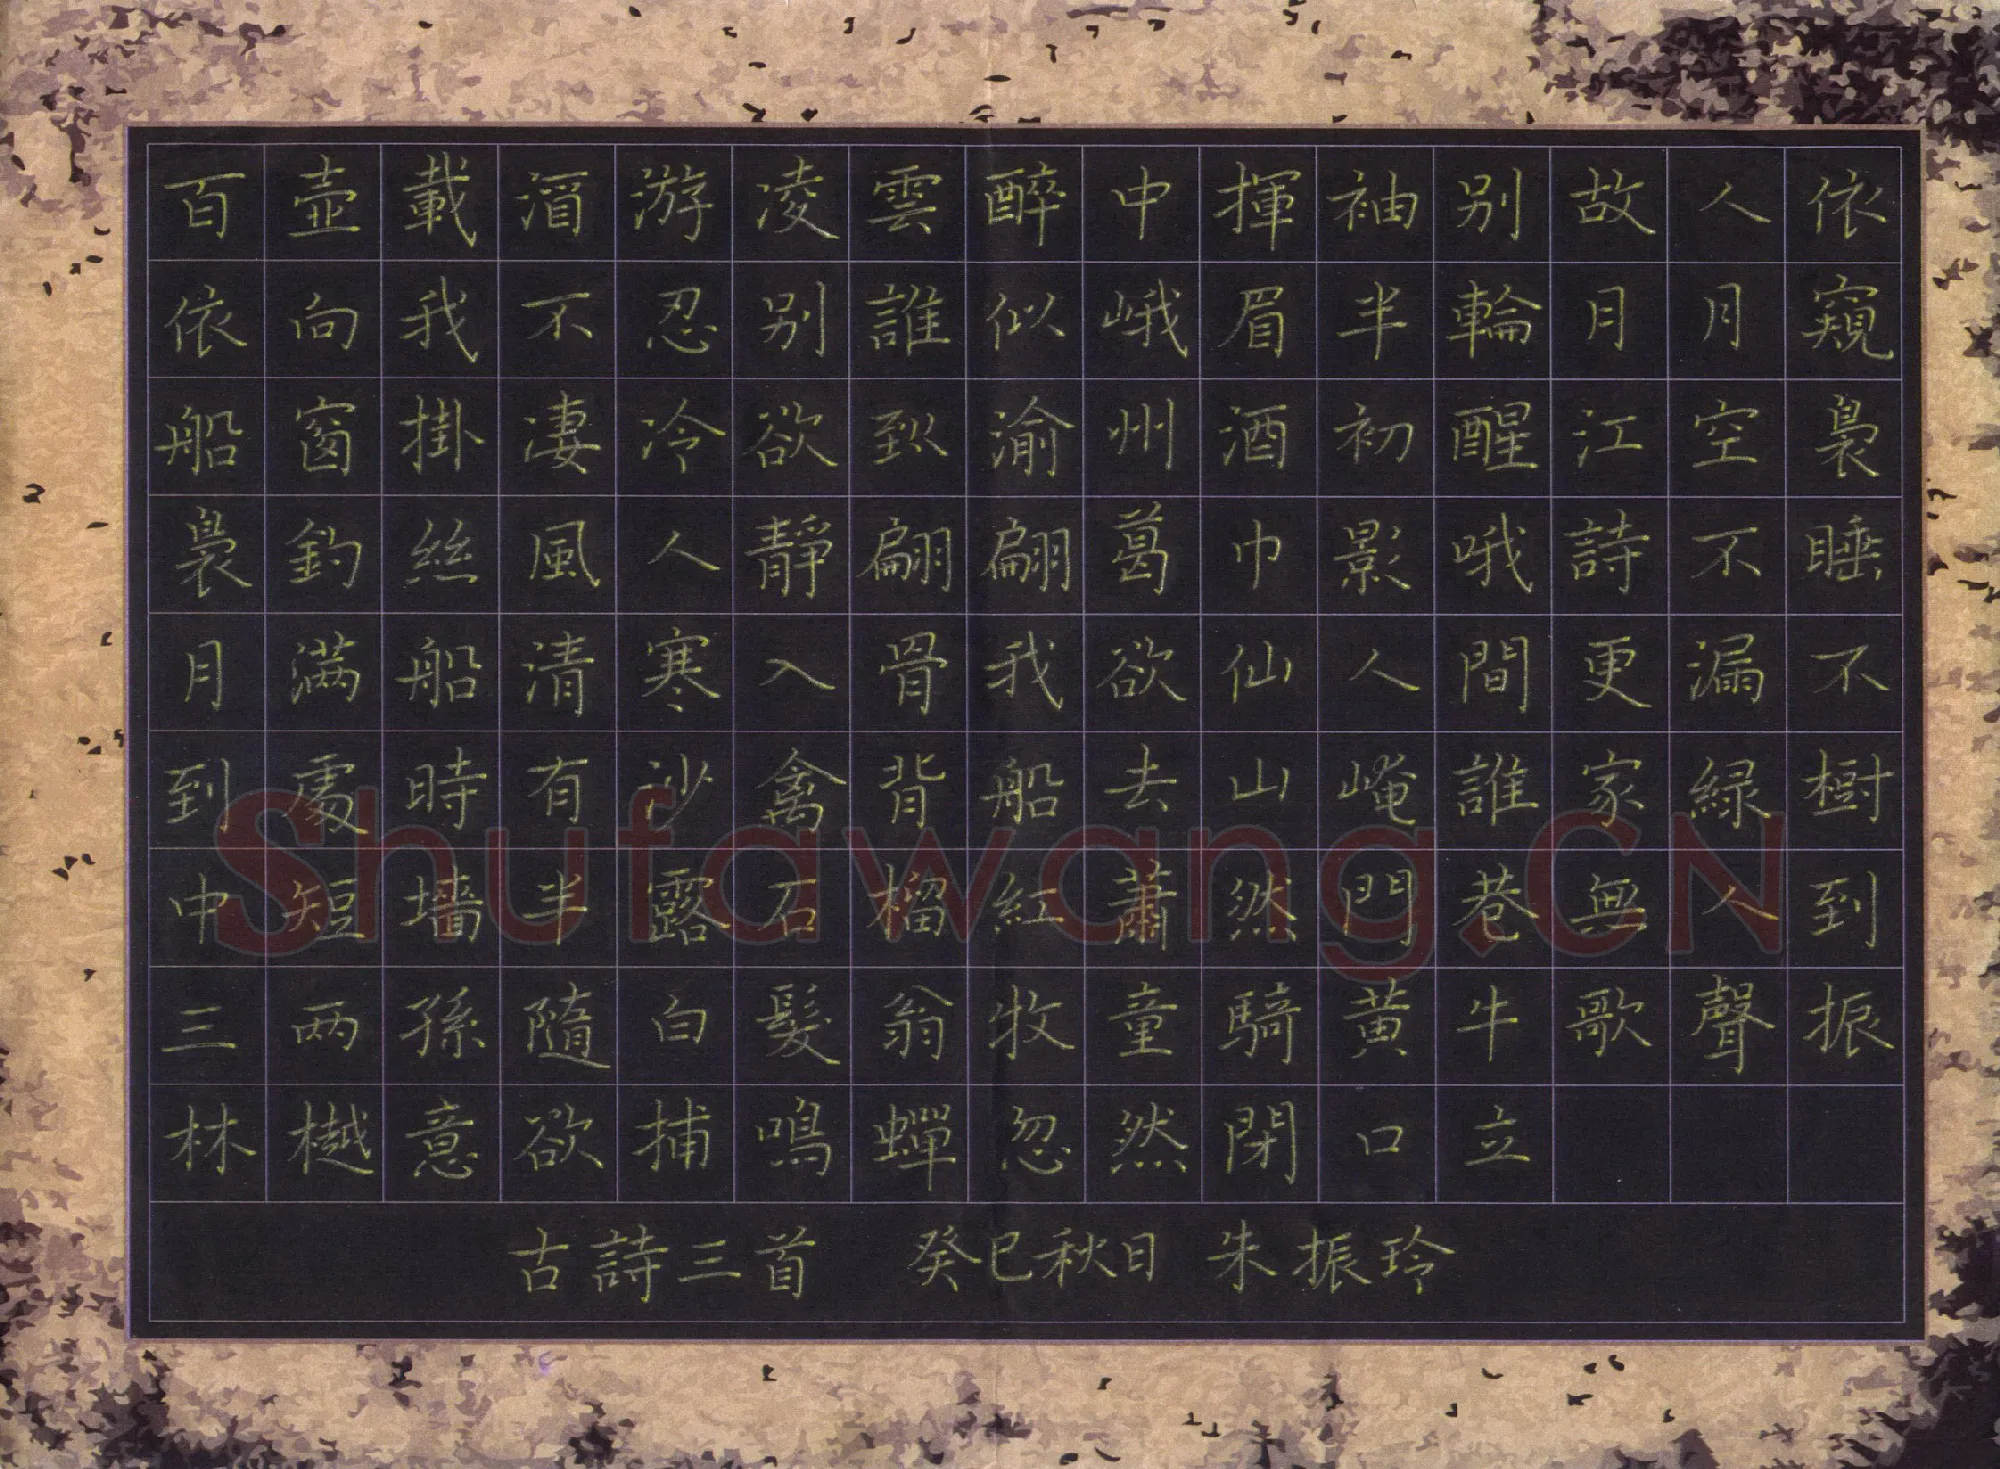 百壺載酒游凌雲醉中揮袖别故人依
依向我不忍别誰似峨眉半輪月月窺
船窗掛凄冷欲到渝州酒初醒江空裊
裊釣絲風人静翩翩葛巾影哦詩不睡
月滿船清寒入骨我欲仙人間更漏不
到處時有沙禽背船去山崦誰家緑樹
中短墻半露石榴紅蕭然門巷無人到
三两孫隨白髮翁牧童騎黄牛歌聲振
林樾意欲捕鳴蟬忽然閉口立
古詩三首 癸巳秋日 朱振玲
Shufawang.CN